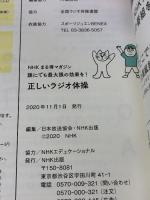 協力/全国ラジオ体操連盟
衣装協力/スポーツジュエンBENEX
TEL 03-3806-5057
NHKまる得マガジン
誰にでも最大限の効果を!
正しいラジオ体操
2020年11月1日 発行
編集/日本放送協会・NHK出版
©2020 NHK
協力/NHKエデュケーショナル
発行/NHK出版
東京都渋谷区宇田川町41-1
電話 0570-009-321(問い合わせ)
0570-000-321